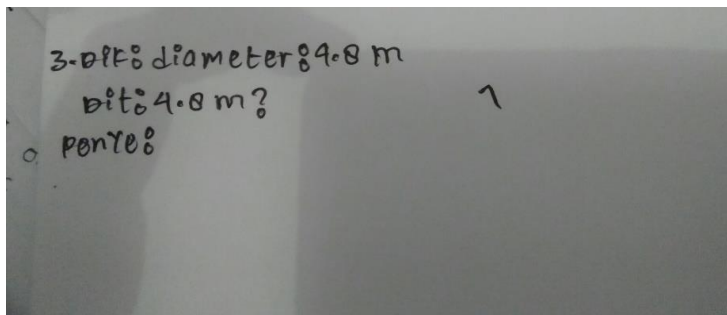 3. Dik: diameter: 4.8 m
Dit: 4.8 m?
Penye: